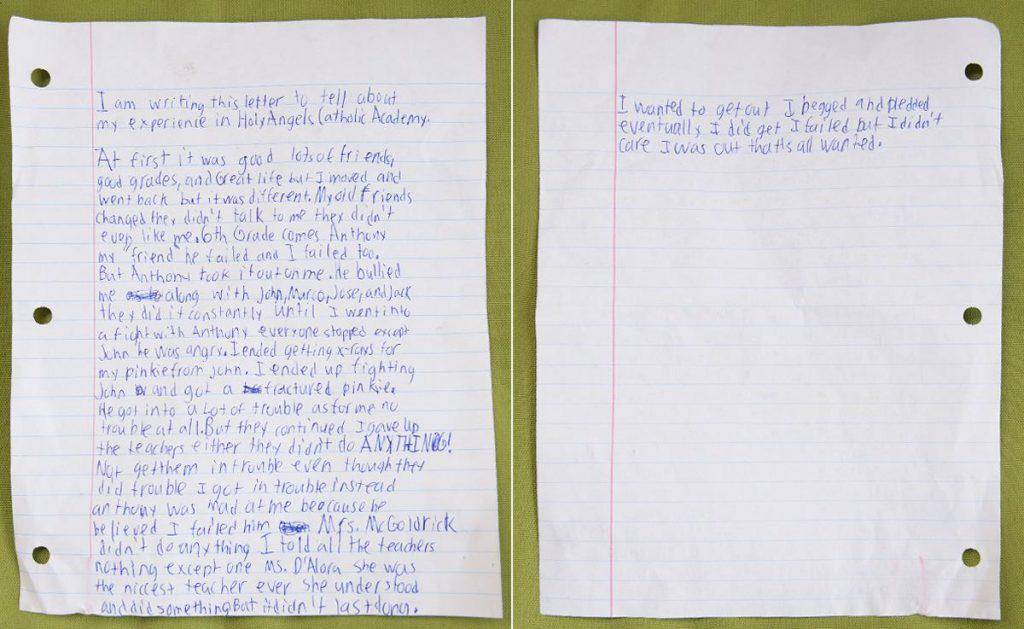 I am writing this letter to tell about
my experience in Holy Angels Catholic Academy.
At first it was good lots of friends,
good grades, and Great life but I moved and
went back but it was different. My old friends
changed they didn't talk to me they didn't
even like me. 6th Grade comes Anthony
my "friend" he failed and I failed too.
But Anthony took it out on me. He bullied
me along with John, Marco, Jose, and Jack
they did it constantly until I went into
a fight with Anthony everyone stopped except
John he was angry. I ended getting x-rays for
my pinkie from John. I ended up fighting
John and got a fractured pinkie.
He got into a Lot of trouble as for me no
trouble at all. But they continued I gave up
the teachers either they didn't do ANYTHING!
Not get them in trouble even though they
did trouble I got in trouble instead
anthony was mad at me beocause he
believed I failed him Mrs. McGoldrick
didn't do anything I told all the teachers
nothing except one Ms. D'Alora she was
the niccest teacher ever she understood
and did something But it didn't last long.
I wanted to get out I begged and pledded
eventually I did get I failed but I didn't
care I was out that's all wanted.